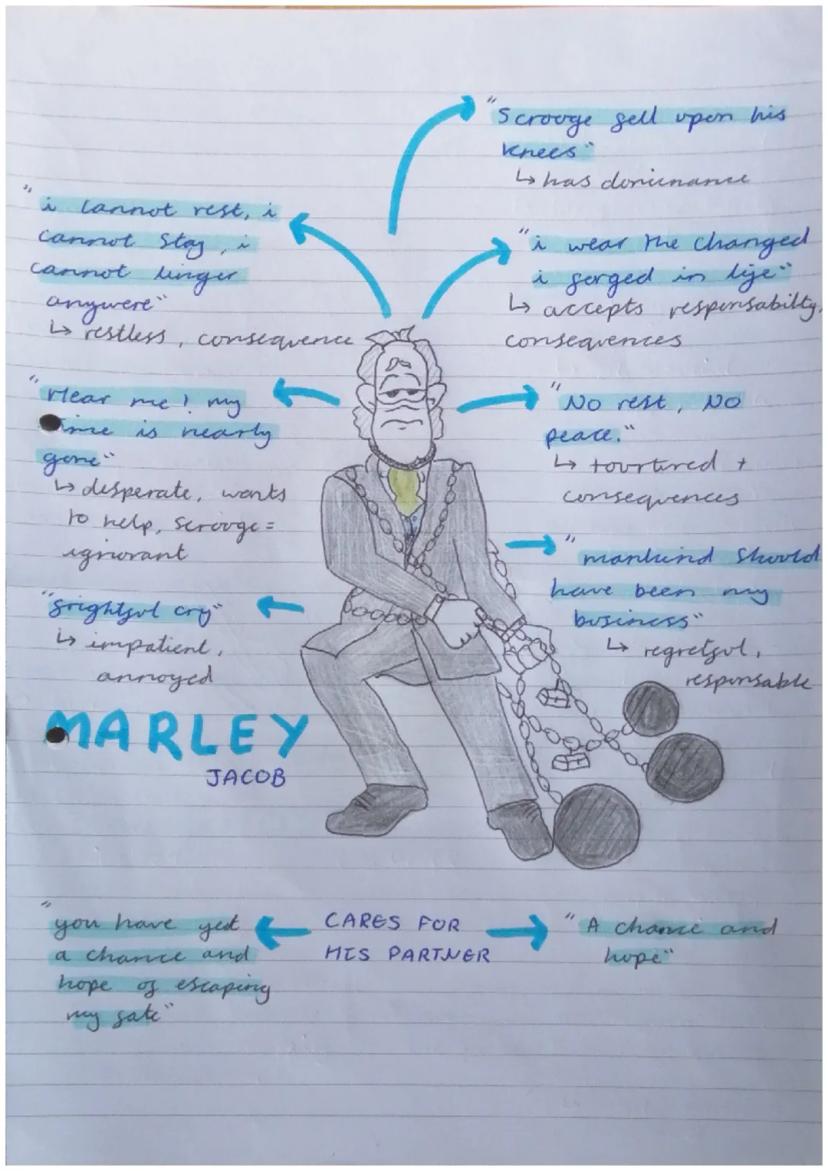 "Scrooge fell upon his
knees"
↳ has dominance
"i cannot rest, i
cannot stay, i
cannot linger
anywere"
↳ restless, consequence
"i wear the changed
i forged in life"
↳ accepts responsabilty,
consequences
"Hear me! my
time is nearly
gone"
↳ desperate, wants
to help, scrooge =
ignorant
"No rest, No
peace."
↳ tourtured +
consequences
"mankind should
have been my
business"
↳ regretful,
responsable
"frightful cry"
↳ impatient,
annoyed
MARLEY
JACOB
CARES FOR
HIS PARTNER
"you have yet
a chance and
hope of escaping
my fate"
"A chance and
hope"